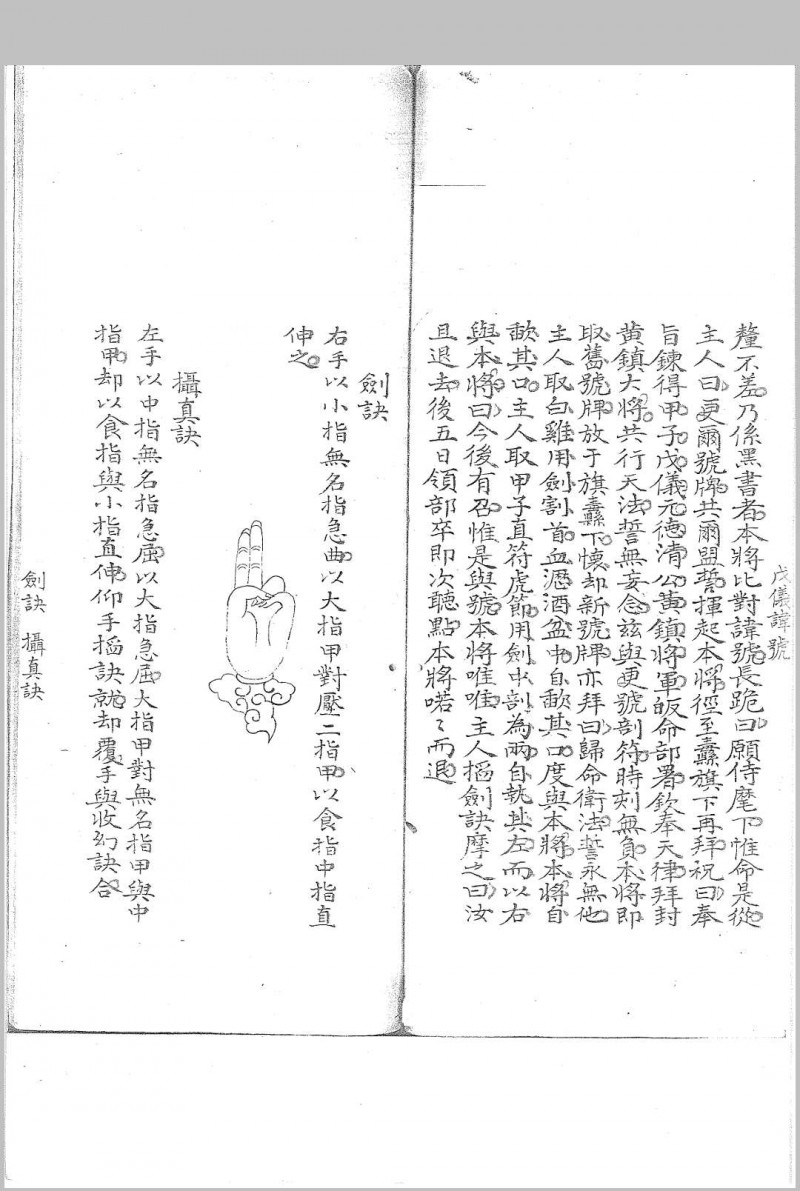 戊儀諱號
釐不差乃係黑書者本將比對諱號長跪曰願侍麾下惟命是從
主人曰更爾號牌共爾盟誓揮起本將徑至纛旗下再拜祝曰奉
旨鍊得甲子戊儀元德清公黃鎮將軍皈命部署欽奉天律拜封
黃鎮大將共行天法誓無妄念茲與更號剖符時刻無負本將即
取舊號牌放于旗纛下懷却新號牌亦拜曰歸命衛法誓永無他
主人取白雞用劍割首血瀝酒盆中自歃其口度與本將本將自
歃其口主人取甲子直符虎節用劍中剖為兩自執其左而以右
與本將曰今後有召惟是與號本將唯唯主人搯劍訣摩之曰汝
且退去後五日領部卒即次聽點本將喏〻而退
劍訣
右手以小指無名指急曲以大指甲對壓二指甲以食指中指直
伸之
攝真訣
左手以中指無名指急屈以大指急屈大指甲對無名指甲與中
指甲却以食指與小指直伸仰手搯訣就却覆手與收幻訣合
劍訣 攝真訣